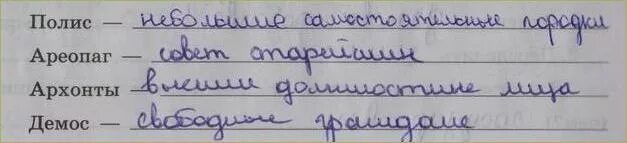 Полис — небольшие самостоятельные городки
Ареопаг — совет старейшин
Архонты — высшие должностные лица
Демос — свободные граждане